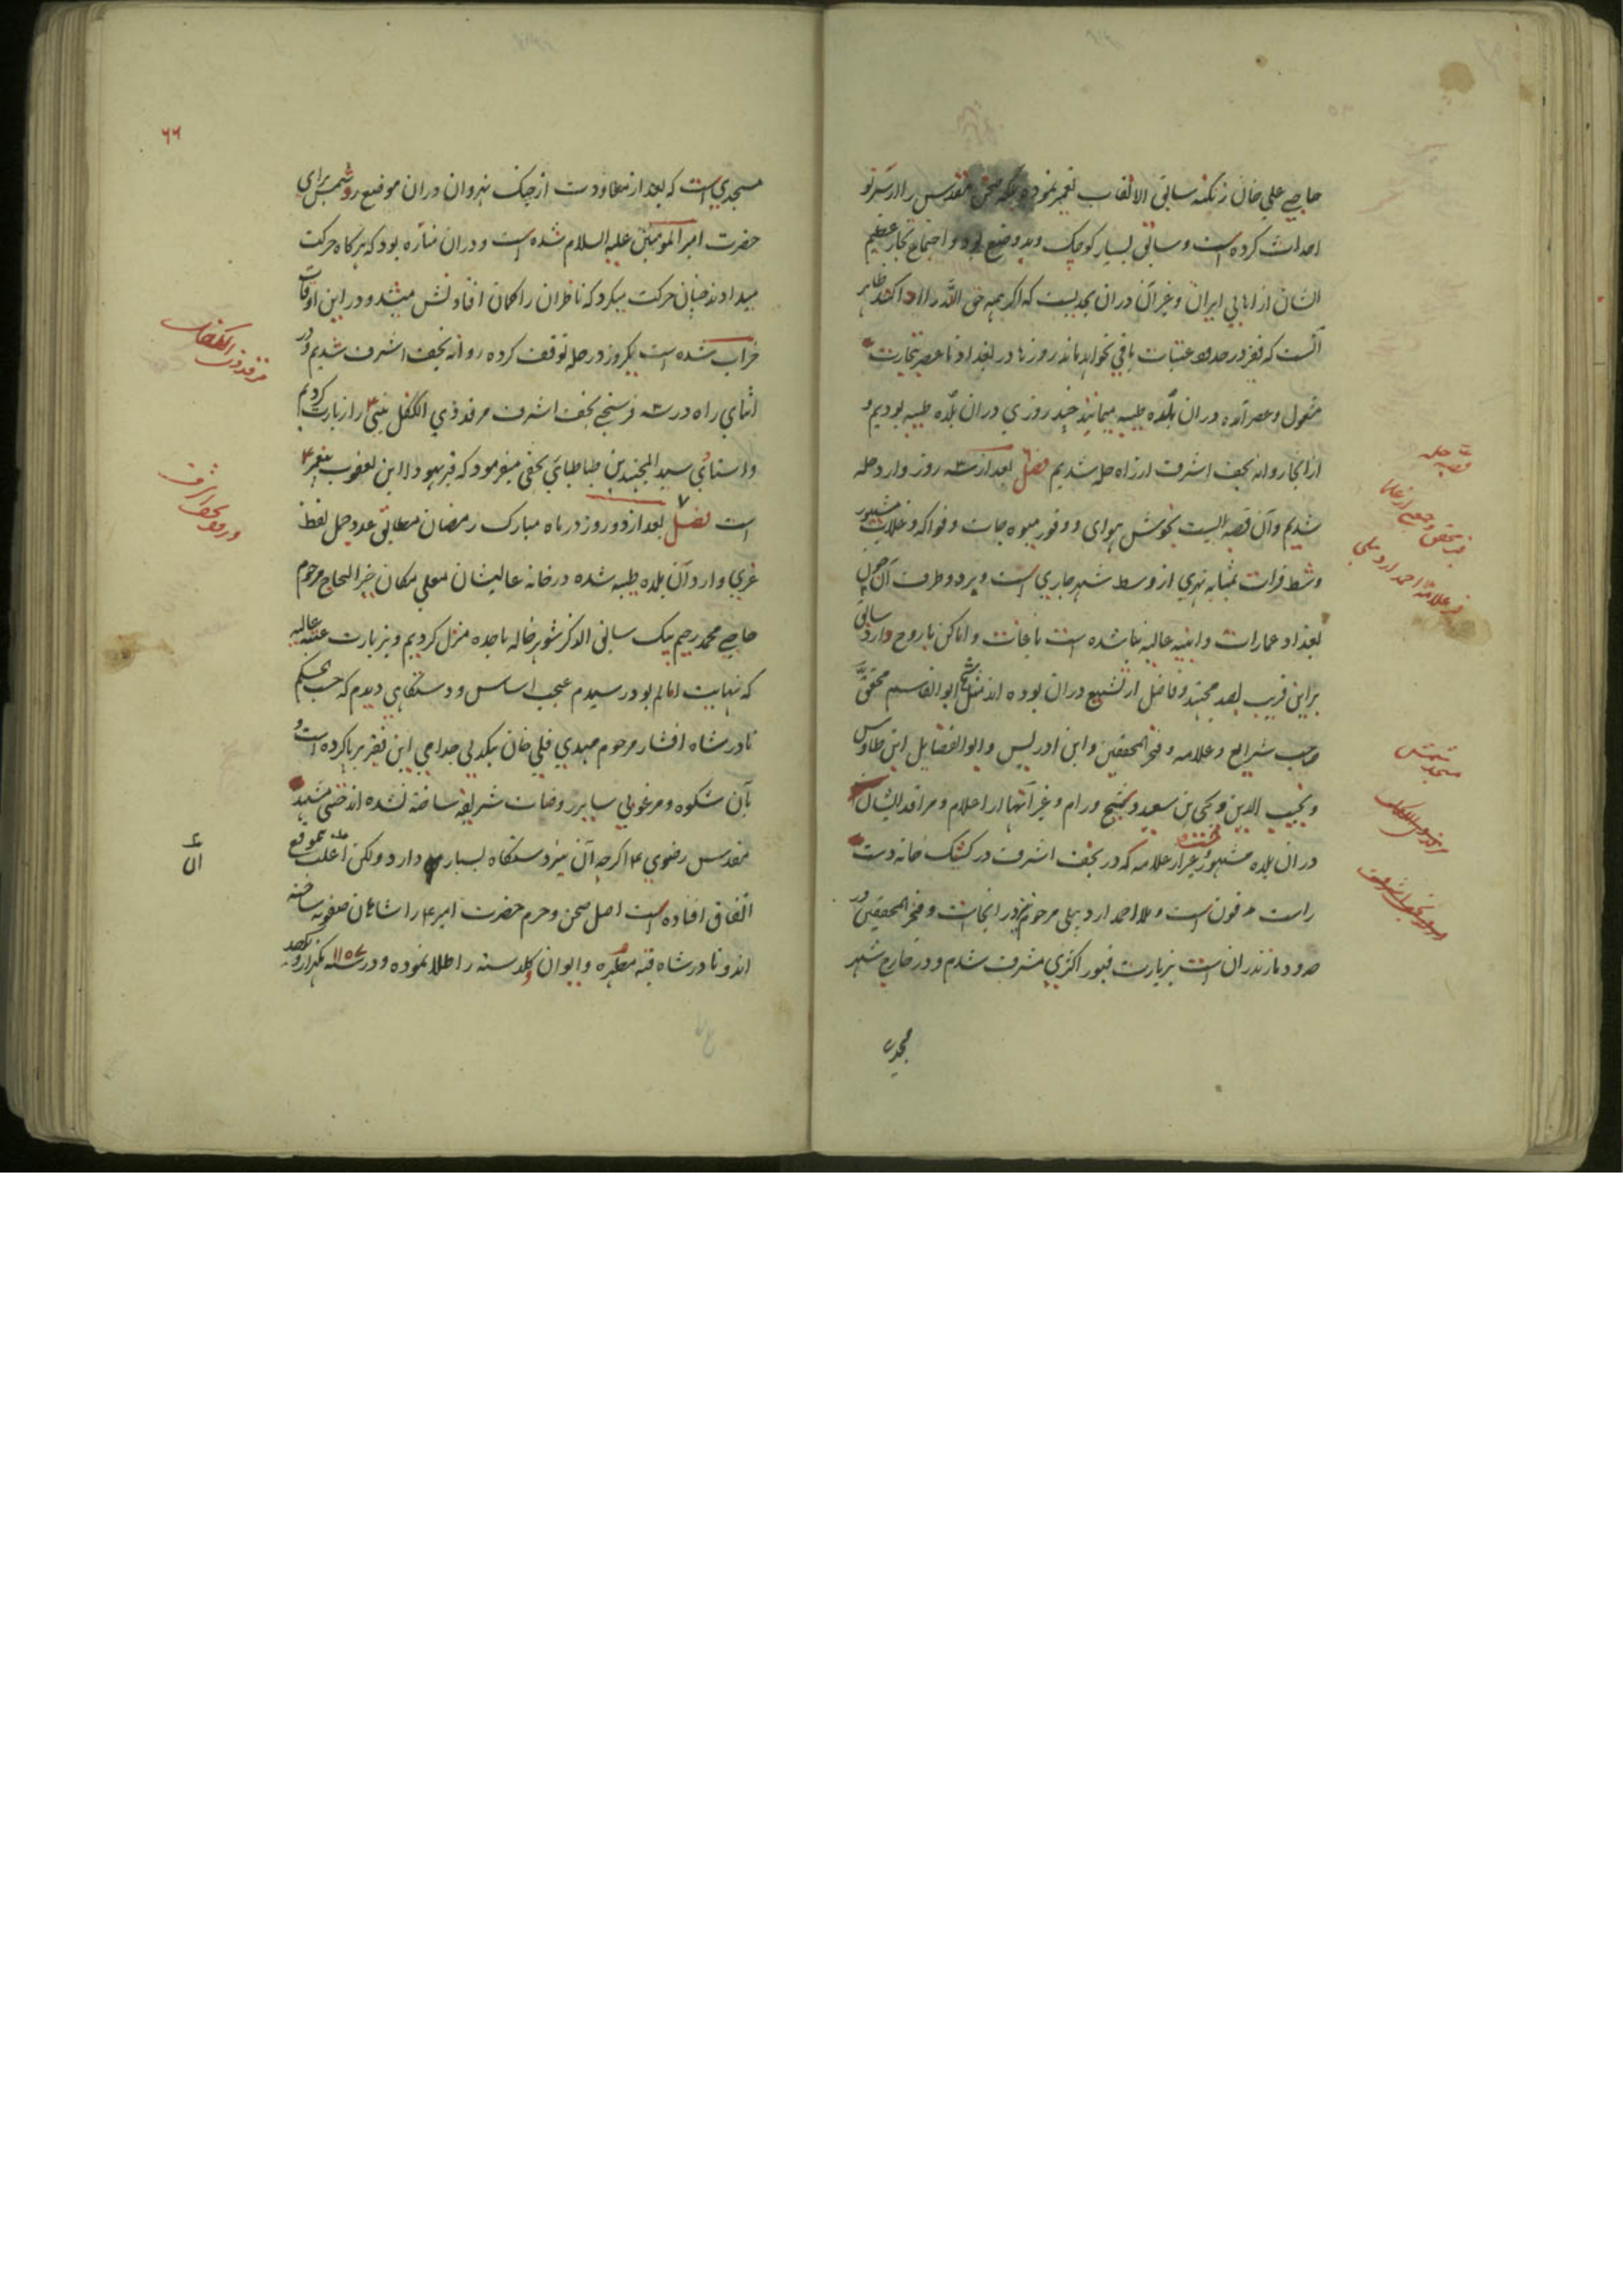 حاجی علی خان زنگنه سابق الالقاب تعمیر نموده بلکه صحن مقدس را از سر نو
احداث کرده است و سابق بسیار کوچک و بدوضع بود و اجتماع تجار عظیم
الشان از اهالی ایران و غیر آن در آن بحدیست که اگر همه حق الله را ادا کنند ظاهر
آنست که فقیر در حدود عتبات باقی نخواهد ماند روزها در بغداد تا عصر بتجارت
مشغول و عصر آمده در آن بلده طیبه میمانند چند روزی در آن بلده طیبه بودیم و
از آنجا روانه نجف اشرف از راه حله شدیم فصل بعد از سه روز وارد حله
شدیم و آن قصبه ایست بخوش هوای و وفور میوه جات و فواکه و غلات مشهور
و شط فرات بمثابه نهری از وسط شهر جاری است و بر دو طرف آن چون
بغداد عمارات و ابنیه عالیه بنا شده است باغات و اماکن با روح دارد سابق
بر این قریب بصد مجتهد و فاضل از تشیع در آن بوده اند مثل شیخ ابوالقاسم محقق
صاحب شرایع و علامه و فخر المحققین و ابن ادریس و ابوالفضایل ابن طاوس
و نجیب الدین و یحیی بن سعید و شیخ ورام و غیر آنها از اعلام و مراقد ایشان
در آن بلده مشهور غیر از علامه که در نجف اشرف در کشک خانه دست
راست مدفون است و ملا احمد اردبیلی مرحوم نیز در آنجاست و فخر المحققین در
حدود مازندران است بزیارت قبور اکثری مشرف شدم و در خارج شهر
مسجدی
قصبه حله
قبر محقق و جمعی از علما
قبر علامه و احمد اردبیلی
مسجد شمس
۶۶
مسجدی است که بعد از معاودت از جنگ نهروان در آن موضع رد شمس برای
حضرت امیر المومنین علیه السلام شده است و در آن مناره بود که هرگاه حرکت
میدادند چنان حرکت میکرد که ناظران را گمان افتادنش میشد و در این اوقات
خراب شده است یکروز در حله توقف کرده روانه نجف اشرف شدیم و در
اثنای راه در سه فرسخی نجف اشرف مرقد ذی الکفل نبی ع را زیارت کردیم
و استنادی سید المجتهدین طباطبائی نجفی میفرمود که قبر یهودا ابن یعقوب پیغمبر ع
است فصل ۷ بعد از دو روز در ماه مبارک رمضان مطابق عدد جمل لفظ
غری وارد آن بلده طیبه شده در خانه عالیشان معلی مکان خیر الحاج مرحوم
حاجی محمد رحیم بیک سابق الذکر شوهر خاله ماجده منزل کردیم و بزیارت عتبه عالیه
که نهایت امالم بود رسیدم عجب اساس و دستگاهی دیدم که حسب الحکم
نادر شاه افشار مرحوم مهدی قلی خان بیکدلی جد امی این فقیر برپا کرده است و
بآن شکوه و مرغوبی سایر روضات شریفه ساخته نشده اند حتی مشهد
مقدس رضوی ع اگرچه آن نیز دستگاه بسیار دارد ولکن اغلب بموقع
اتفاق افتاده است اصل صحن و حرم حضرت امیر ع را شاهان صفویه ساخته
اند و نادر شاه قبه مطهره و ایوان و گلدسته را طلا نموده و در سنه ۱۱۵۶ یکهزار و یکصد
مرقد ذی الکفل
ورود نجف اشرف